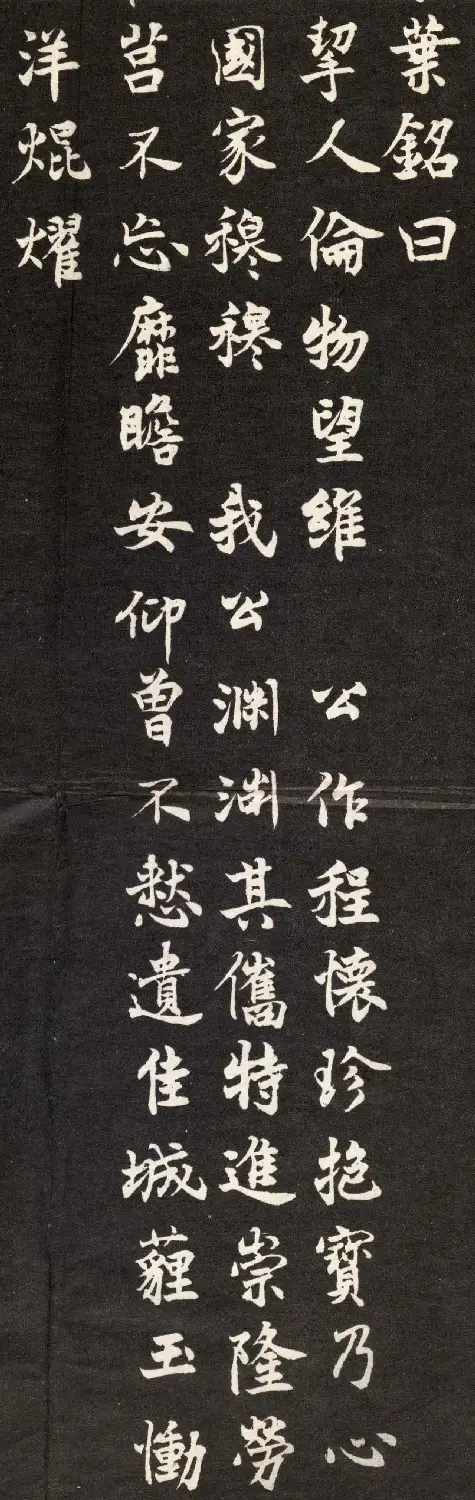 葉銘曰
挈人倫物望維 公作程懷珍抱寶乃心
國家穆穆 我公淵淵其儁特進崇隆勞
不忘靡瞻安仰曾不慭遺佳城薶玉慟
洋焜燿